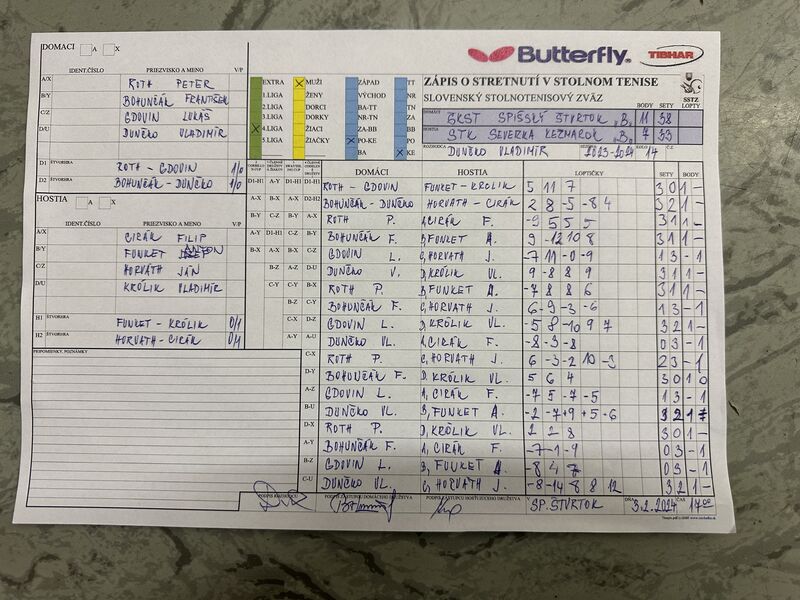 DOMACI A X
IDENT.ČÍSLO PRIEZVISKO A MENO V/P
A/X ROTH PETER
B/Y BOHUNČÁK FRANTIŠEK
C/Z GDOVIN LUKÁŠ
D/U DUNČKO VLADIMÍR
D1 ŠTVORHRA ROTH - GDOVIN 1/0
D2 BOHUNČÁK - DUNČKO 1/0
HOSTIA A X
IDENT.ČÍSLO PRIEZVISKO A MENO V/P
A/X CIRÁK FILIP
B/Y FUNKET ANTON
C/Z HORVÁTH JÁN
D/U KRÓLIK VLADIMÍR
H1 ŠTVORHRA FUNKET - KRÓLIK 0/1
H2 ŠTVORHRA HORVATH - CIRÁK 0/1
PRIPOMIENKY, POZNÁMKY
Butterfly TIBHAR
EXTRA X MUŽI ZÁPAD TT
1.LIGA ŽENY VÝCHOD NR
2.LIGA DORCI BA-TT TN
3.LIGA DORKY NR-TN ZA
X 4.LIGA ŽIACI ZA-BB BB
5.LIGA ŽIAČKY X PO-KE PO
BA X KE
ZÁPIS O STRETNUTÍ V STOLNOM TENISE
SLOVENSKÝ STOLNOTENISOVÝ ZVÄZ
SSTZ
BODY SETY LOPTY
DOMÁCI GKST SPIŠSKÝ ŠTVRTOK "B" 11 38
HOSTIA STK SEVERKA KEŽMAROK "B" 7 33
ROZHODCA DUNČKO VLADIMÍR 2023-2024 14 Č.
DOMÁCI HOSTIA LOPTIČKY SETY BODY
D1-H1 A-Y D1-H1 D1-H1 ROTH - GDOVIN FUNKET - KRÓLIK 5 11 7 3 0 1 -
A-X B-X A-X D2-H2 BOHUNČÁK - DUNČKO HORVATH - CIRÁK 2 8 -5 -8 4 3 2 1 -
B-Y C-Z B-Y A-X ROTH P. A, CIRÁK F. -9 5 5 5 3 1 1 -
A-Y D1-H1 C-Z B-Y BOHUNČÁK F. B, FUNKET A. 9 -12 10 8 3 1 1 -
B-X A-X B-X C-Z GDOVIN L. C, HORVATH J. -7 11 -0 -9 1 3 - 1
B-Z A-Z D-U DUNČKO V. D, KRÓLIK VL. 9 -8 8 9 3 1 1 -
C-Y B-Y ROTH P. B, FUNKET A. -7 8 8 6 3 1 1 -
B-Z C-Y BOHUNČÁK F. C, HORVATH J. 6 -9 -3 -6 1 3 - 1
C-X D-Z GDOVIN L. D, KRÓLIK VL. -5 8 -10 9 7 3 2 1 -
A-Y A-U DUNČKO VL. A, CIRÁK F. -8 -3 -8 0 3 - 1
C-X ROTH P. C, HORVATH J. 6 -3 -2 10 -3 2 3 - 1
D-Y BOHUNČÁK F. D, KRÓLIK VL. 5 6 4 3 0 1 0
A-Z GDOVIN L. A, CIRÁK F. -7 5 -7 -5 1 3 - 1
B-U DUNČKO VL. B, FUNKET A. -2 -7 +9 +5 -6
D-X ROTH P. D, KRÓLIK VL. 2 2 8 3 0 1 -
A-Y BOHUNČÁK F. A, CIRÁK F. -7 -1 -9 0 3 - 1
B-Z GDOVIN L. B, FUNKET A. -8 4 7 0 3 - 1
C-U DUNČKO VL. C, HORVATH J. -8 -14 8 8 12 3 2 1 -
PODPIS ROZHODCU PODPIS ZÁSTUPCU DOMÁCEHO DRUŽSTVA PODPIS ZÁSTUPCU HOSŤUJÚCEHO DRUŽSTVA V SP. ŠTVRTOK DŇA 3.2.2024 ČAS 17:00